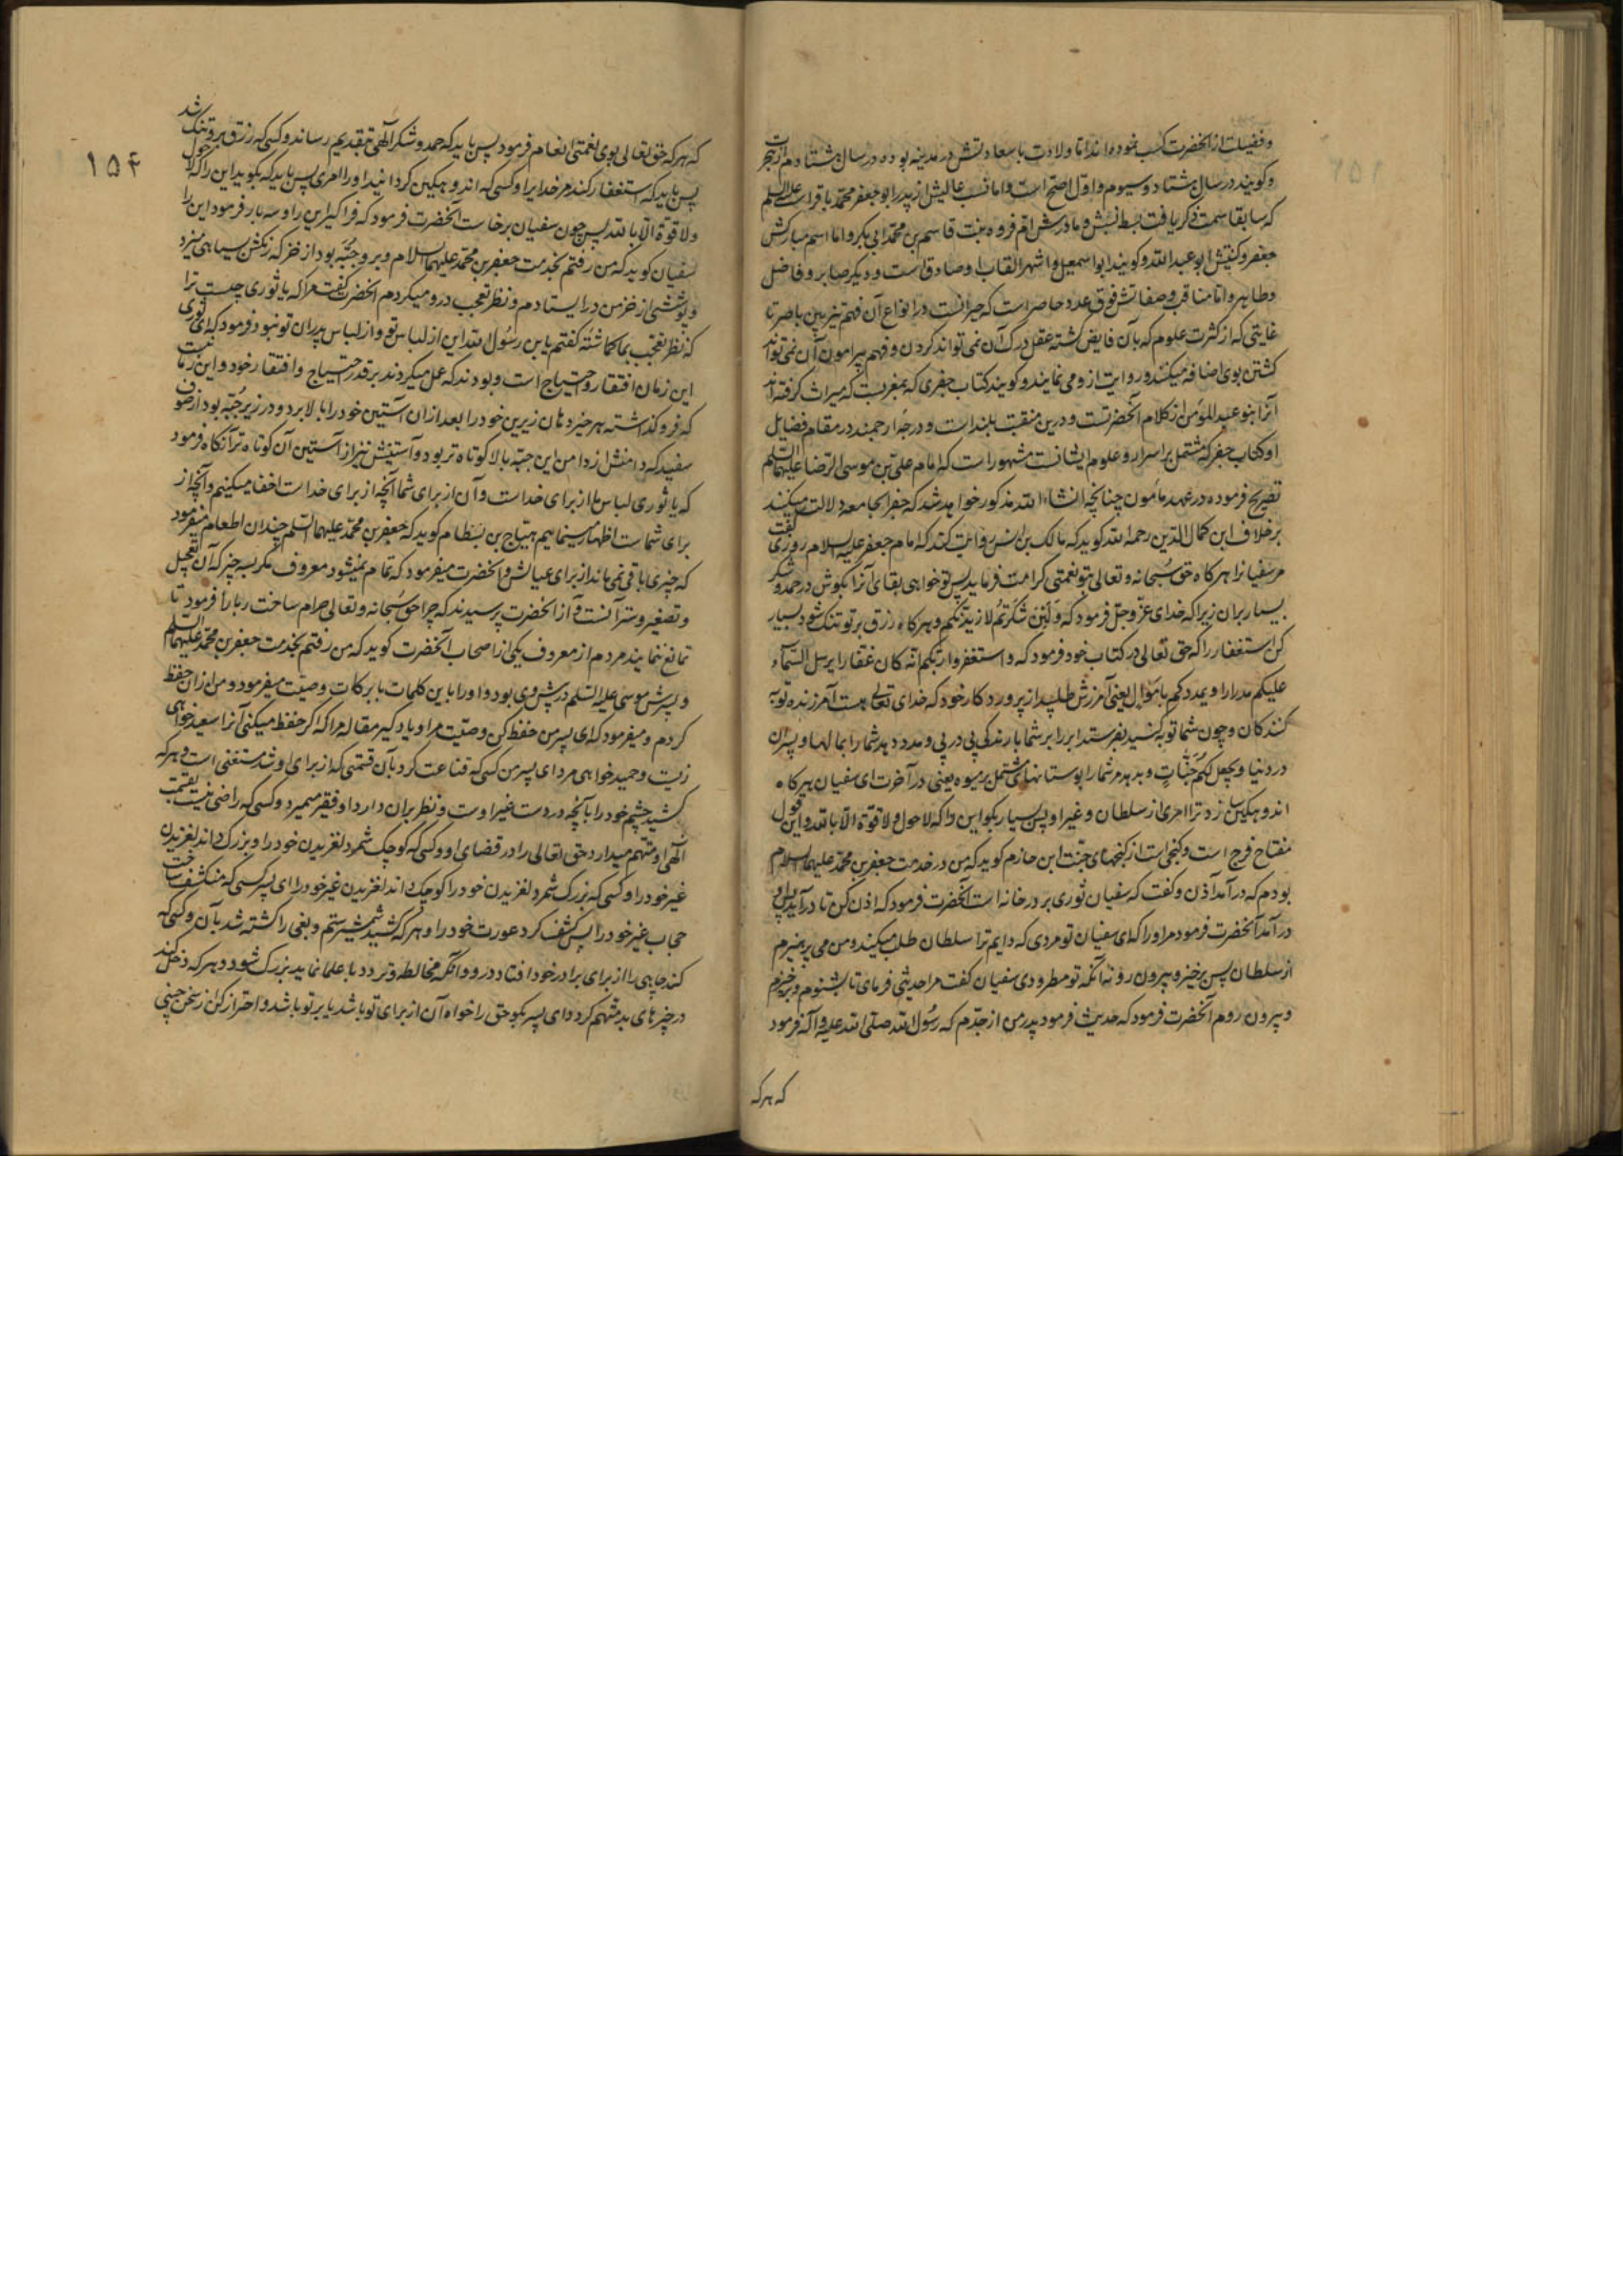 وفضیلت از آنحضرت کسب نموده‌اند اما ولادت باسعادتش در مدینه بوده در سال هشتادم از هجرت
وکویند در سال هشتاد وسیوم واول اصح است واما نسب عالیش از پدر ابو جعفر محمد باقر است علیه السلم
که سابقا سمت ذکر یافت بسط نسبش ومادرش ام فروه بنت قاسم بن محمد ابی بکر واما اسم مبارکش
جعفر وکنیتش ابو عبدالله وکویند ابو اسمعیل واشهر القاب او صادق است ودیکر صابر وفاضل
وطاهر واما مناقب وصفاتش فوق عدد حاصر است که حیرانست در انواع آن فهم تیزبین باصر تا
غایتی که از کثرت علوم که بآن فایض کشته عقل درک آن نمی‌تواند کردن وفهم پیرامون آن نمی‌تواند
کشتن بوی اضافه میکنند وروایت ازو می نمایند وکویند کتاب جفری که بمغربست که میراث کرفته‌اند
آنرا بنو عبد المومن از کلام آنحضرتست ودرین منقبت بلند است ودرجۀ ارجمند در مقام فضایل
او وکتاب جفر که مشتمل بر اسرار وعلوم ایشانست مشهور است که امام علی بن موسی الرضا علیهما السلم
تصریح فرموده در عهد مامون چنانچه انشاءالله مذکور خواهد شد که جفر الجامعه دلالت میکنند
برخلاف ابن کمال الدین رحمه الله کوید که مالک بن انس روایت کند که امام جعفر علیه السلام روزی کفت
مر سفیانرا هر کاه حق سبحانه وتعالی بتو نعمتی کرامت فرماید پس تو خواهی بقای آنرا بکوش در حمد وشکر
بسیار بران زیرا که خدای عز وجل فرمود که ولئن شکرتم لازیدنکم وهر کاه رزق بر تو تنک شود بسیار
کن استغفار را که حق تعالی در کتاب خود فرمود که واستغفروا ربکم انه کان غفارا یرسل السماء
علیکم مدرارا ویمددکم باموال یعنی آمرزش طلبید از پروردکار خود که خدای تعالی هست آمرزنده توبه
کنندکان وچون شما توبه کنید بفرستد ابر را بر شما بارندکی پی در پی ومدد دهد شما را بمالها وپسران
در دنیا ویجعل لکم جنات وبدهد مر شما را بوستانهای مشتمل بر میوه یعنی در آخرت ای سفیان هر کاه
اندوهکین سازد ترا امری از سلطان وغیر او پس بسیار بکو این را که لا حول ولا قوة الا بالله واین قول
مفتاح فرج است وکنجی است از کنجهای جنت ابن حازم کوید که من در خدمت جعفر بن محمد علیهما السلام
بودم که درآمد آذن وکفت که سفیان ثوری بر در خانه است آنحضرت فرمود که اذن کن تا درآید پس او
درآمد آنحضرت فرمود مر او را که ای سفیان تو مردی که دایم ترا سلطان طلب میکند ومن می پرهیزم
از سلطان پس برخیز وبیرون رو نه آنکه تو مطرودی سفیان کفت مرا حدیثی فرمای تا بشنوم وبرخیزم
وبیرون روم آنحضرت فرمود که حدیث فرمود پدر من از جدم که رسول الله صلی الله علیه وآله فرمود
که هر که
۱۵۴
که هر که حق تعالی بوی نعمتی انعام فرمود پس باید که حمد وشکر الهی بتقدیم رساند وکسی که رزق برو تنک شد
پس باید که استغفار کند مر خدایرا وکسی که اندوهکین کردانید او را امری پس باید که بکوید این را که لا حول
ولا قوة الا بالله پس چون سفیان برخاست آنحضرت فرمود که فراکیر این را وسه بار فرمود این را
سفیان کوید که من رفتم بخدمت جعفر بن محمد علیهما السلام وبر وی جبۀ بود از خز که رنکش بسیاهی میزد
وپوششی از خز من درایستادم ونظر تعجب درو میکردم آنحضرت کفت مرا که یا ثوری چیست ترا
که نظر تعجب بما کماشتۀ کفتم یا بن رسول الله این از لباس تو واز لباس پدران تو نبود فرمود که ای ثوری
این زمان افتقار واحتیاج است وبودند که عمل میکردند بر قدر احتیاج وافتقار خود واین زمانیست
که فرو کذاشته هر خیر دهان زیرین خود را بعد ازان آستین خود را بالا برد ودر زیر جبۀ بود از صوف
سفید که دامنش از دامن این جبه بالا کوتاه‌تر بود وآستینش نیز از آستین آن کوتاه‌تر آنکاه فرمود
که یا ثوری لباس ما از برای خداست وآن از برای شما آنچه از برای خداست اخفا میکنیم وآنچه از
برای شماست اظهار مینماییم هیاج بن بسطام کوید که جعفر بن محمد علیهما السلم چندان اطعام میفرمود
که چیزی باقی نمی‌ماند از برای عیالش وآنحضرت میفرمود که تمام نمیشود معروف مکر بسه چیز که آن تعجیل
وتصغیر وستر آنست وآز آنحضرت پرسیدند که چرا حق سبحانه وتعالی حرام ساخت ربا را فرمود تا
تمانع ننمایند مردم از معروف یکی از اصحاب آنحضرت کوید که من رفتم بخدمت جعفر بن محمد علیهما السلم
وپسرش موسی علیه السلم در پیش وی بود واو را باین کلمات بابرکات وصیت میفرمود ومن ازان حفظ
کردم ومیفرمود که ای پسر من حفظ کن وصیت مرا ویاد کیر مقال مرا که اکر حفظ میکنی آنرا سعید خواهی
زیست وحمید خواهی مرد ای پسر من کسی که قناعت کرد بآن قسمتی که از برای او شد مستغنی است وهر که
کشید چشم خود را بآنچه در دست غیر اوست ونظر بران دارد او فقیر میمیرد وکسی که راضی نیست بقسمت
الهی او متهم میدارد حق تعالی را در قضای او وکسی که کوچک شمرد لغزیدن خود را وبزرک داند لغزیدن
غیر خود را وکسی که بزرک شمرد لغزیدن خود را کوچک داند لغزیدن غیر خود را ای پسر کسی که منکشف ساخت
حجاب غیر خود را پس کشف کرد عورت خود را وهر که کشید شمشیر ستم وبغی را کشته شد بآن وکسی که
کند چاهی را از برای برادر خود افتاد درو وآنکه مخالطه وتردد با علما نماید بزرک شود وهر که دخل کند
در چیزهای بد متهم کردد ای پسر بکو حق را خواه آن از برای تو باشد یا بر تو باشد واحتراز کن از سخن چینی